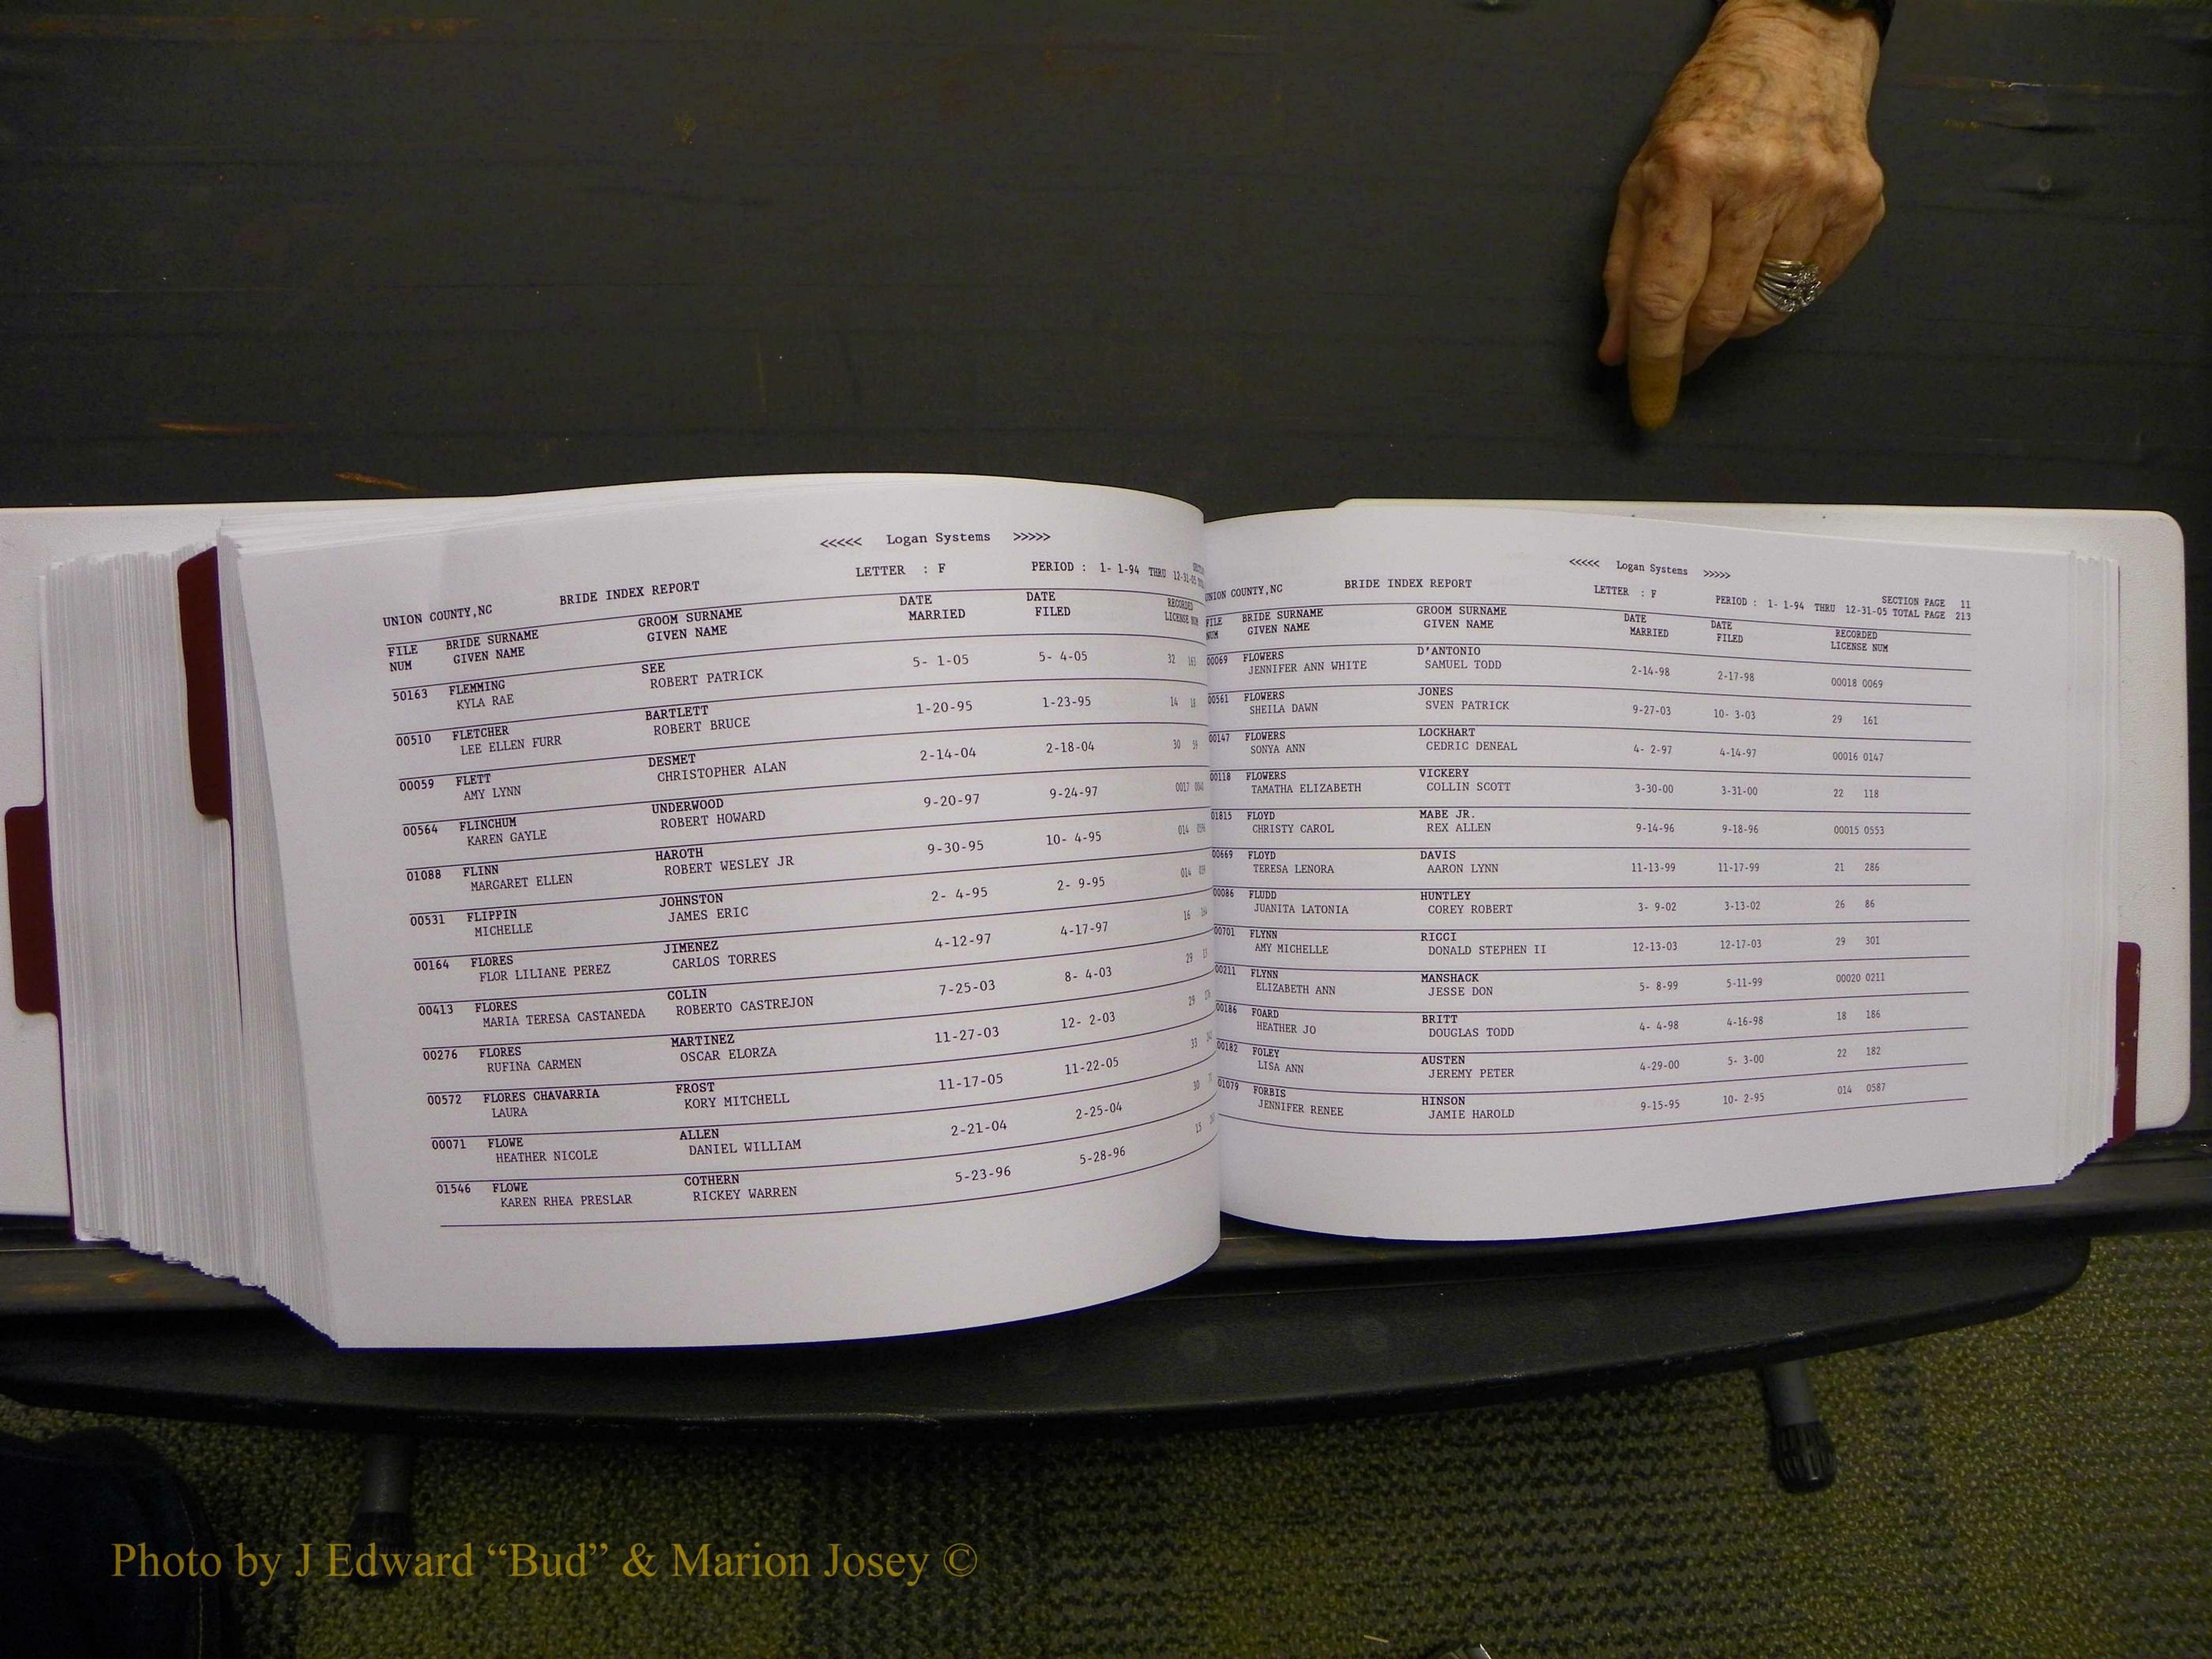 <<<<< Logan Systems >>>>>
UNION COUNTY,NC BRIDE INDEX REPORT LETTER : F PERIOD : 1- 1-94 THRU 12-31-05
FILE BRIDE SURNAME GROOM SURNAME DATE DATE RECORDED
NUM GIVEN NAME GIVEN NAME MARRIED FILED LICENSE NUM
50163 FLEMMING SEE 5- 1-05 5- 4-05 32
KYLA RAE ROBERT PATRICK
00510 FLETCHER BARTLETT 1-20-95 1-23-95 14
LEE ELLEN FURR ROBERT BRUCE
00059 FLETT DESMET 2-14-04 2-18-04 30 59
AMY LYNN CHRISTOPHER ALAN
00564 FLINCHUM UNDERWOOD 9-20-97 9-24-97 0017
KAREN GAYLE ROBERT HOWARD
01088 FLINN HAROTH 9-30-95 10- 4-95 014
MARGARET ELLEN ROBERT WESLEY JR
00531 FLIPPIN JOHNSTON 2- 4-95 2- 9-95 014
MICHELLE JAMES ERIC
00164 FLORES JIMENEZ 4-12-97 4-17-97 16
FLOR LILIANE PEREZ CARLOS TORRES
00413 FLORES COLIN 7-25-03 8- 4-03 29
MARIA TERESA CASTANEDA ROBERTO CASTREJON
00276 FLORES MARTINEZ 11-27-03 12- 2-03 29
RUFINA CARMEN OSCAR ELORZA
00572 FLORES CHAVARRIA FROST 11-17-05 11-22-05 33
LAURA KORY MITCHELL
00071 FLOWE ALLEN 2-21-04 2-25-04 30
HEATHER NICOLE DANIEL WILLIAM
01546 FLOWE COTHERN 5-23-96 5-28-96 15
KAREN RHEA PRESLAR RICKEY WARREN
<<<<< Logan Systems >>>>>
UNION COUNTY,NC BRIDE INDEX REPORT LETTER : F SECTION PAGE 11
PERIOD : 1- 1-94 THRU 12-31-05 TOTAL PAGE 213
FILE BRIDE SURNAME GROOM SURNAME DATE DATE RECORDED
NUM GIVEN NAME GIVEN NAME MARRIED FILED LICENSE NUM
00069 FLOWERS D'ANTONIO 2-14-98 2-17-98 00018 0069
JENNIFER ANN WHITE SAMUEL TODD
00561 FLOWERS JONES 9-27-03 10- 3-03 29 161
SHEILA DAWN SVEN PATRICK
00147 FLOWERS LOCKHART 4- 2-97 4-14-97 00016 0147
SONYA ANN CEDRIC DENEAL
00118 FLOWERS VICKERY 3-30-00 3-31-00 22 118
TAMATHA ELIZABETH COLLIN SCOTT
01815 FLOYD MABE JR. 9-14-96 9-18-96 00015 0553
CHRISTY CAROL REX ALLEN
00669 FLOYD DAVIS 11-13-99 11-17-99 21 286
TERESA LENORA AARON LYNN
00086 FLUDD HUNTLEY 3- 9-02 3-13-02 26 86
JUANITA LATONIA COREY ROBERT
00701 FLYNN RICCI 12-13-03 12-17-03 29 301
AMY MICHELLE DONALD STEPHEN II
00211 FLYNN MANSHACK 5- 8-99 5-11-99 00020 0211
ELIZABETH ANN JESSE DON
00186 FOARD BRITT 4- 4-98 4-16-98 18 186
HEATHER JO DOUGLAS TODD
00182 FOLEY AUSTEN 4-29-00 5- 3-00 22 182
LISA ANN JEREMY PETER
01079 FORBIS HINSON 9-15-95 10- 2-95 014 0587
JENNIFER RENEE JAMIE HAROLD
Photo by J Edward “Bud” & Marion Josey ©